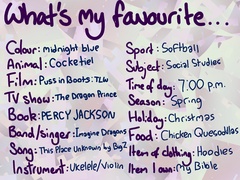 What's my favourite...
Colour: midnight blue
Animal: Cocketiel
Film: Puss in Boots: TLW
TV show: The Dragon Prince
Book: PERCY JACKSON
Band/singer: Imagine Dragons
Song: This Place Unknown by BigZ
Instrument: Ukelele/Violin
Sport: Softball
Subject: Social Studies
Time of day: 7:00 p.m.
Season: Spring
Holiday: Christmas
Food: Chicken Quesadillas
Item of clothing: Hoodies
Item I own: My Bible